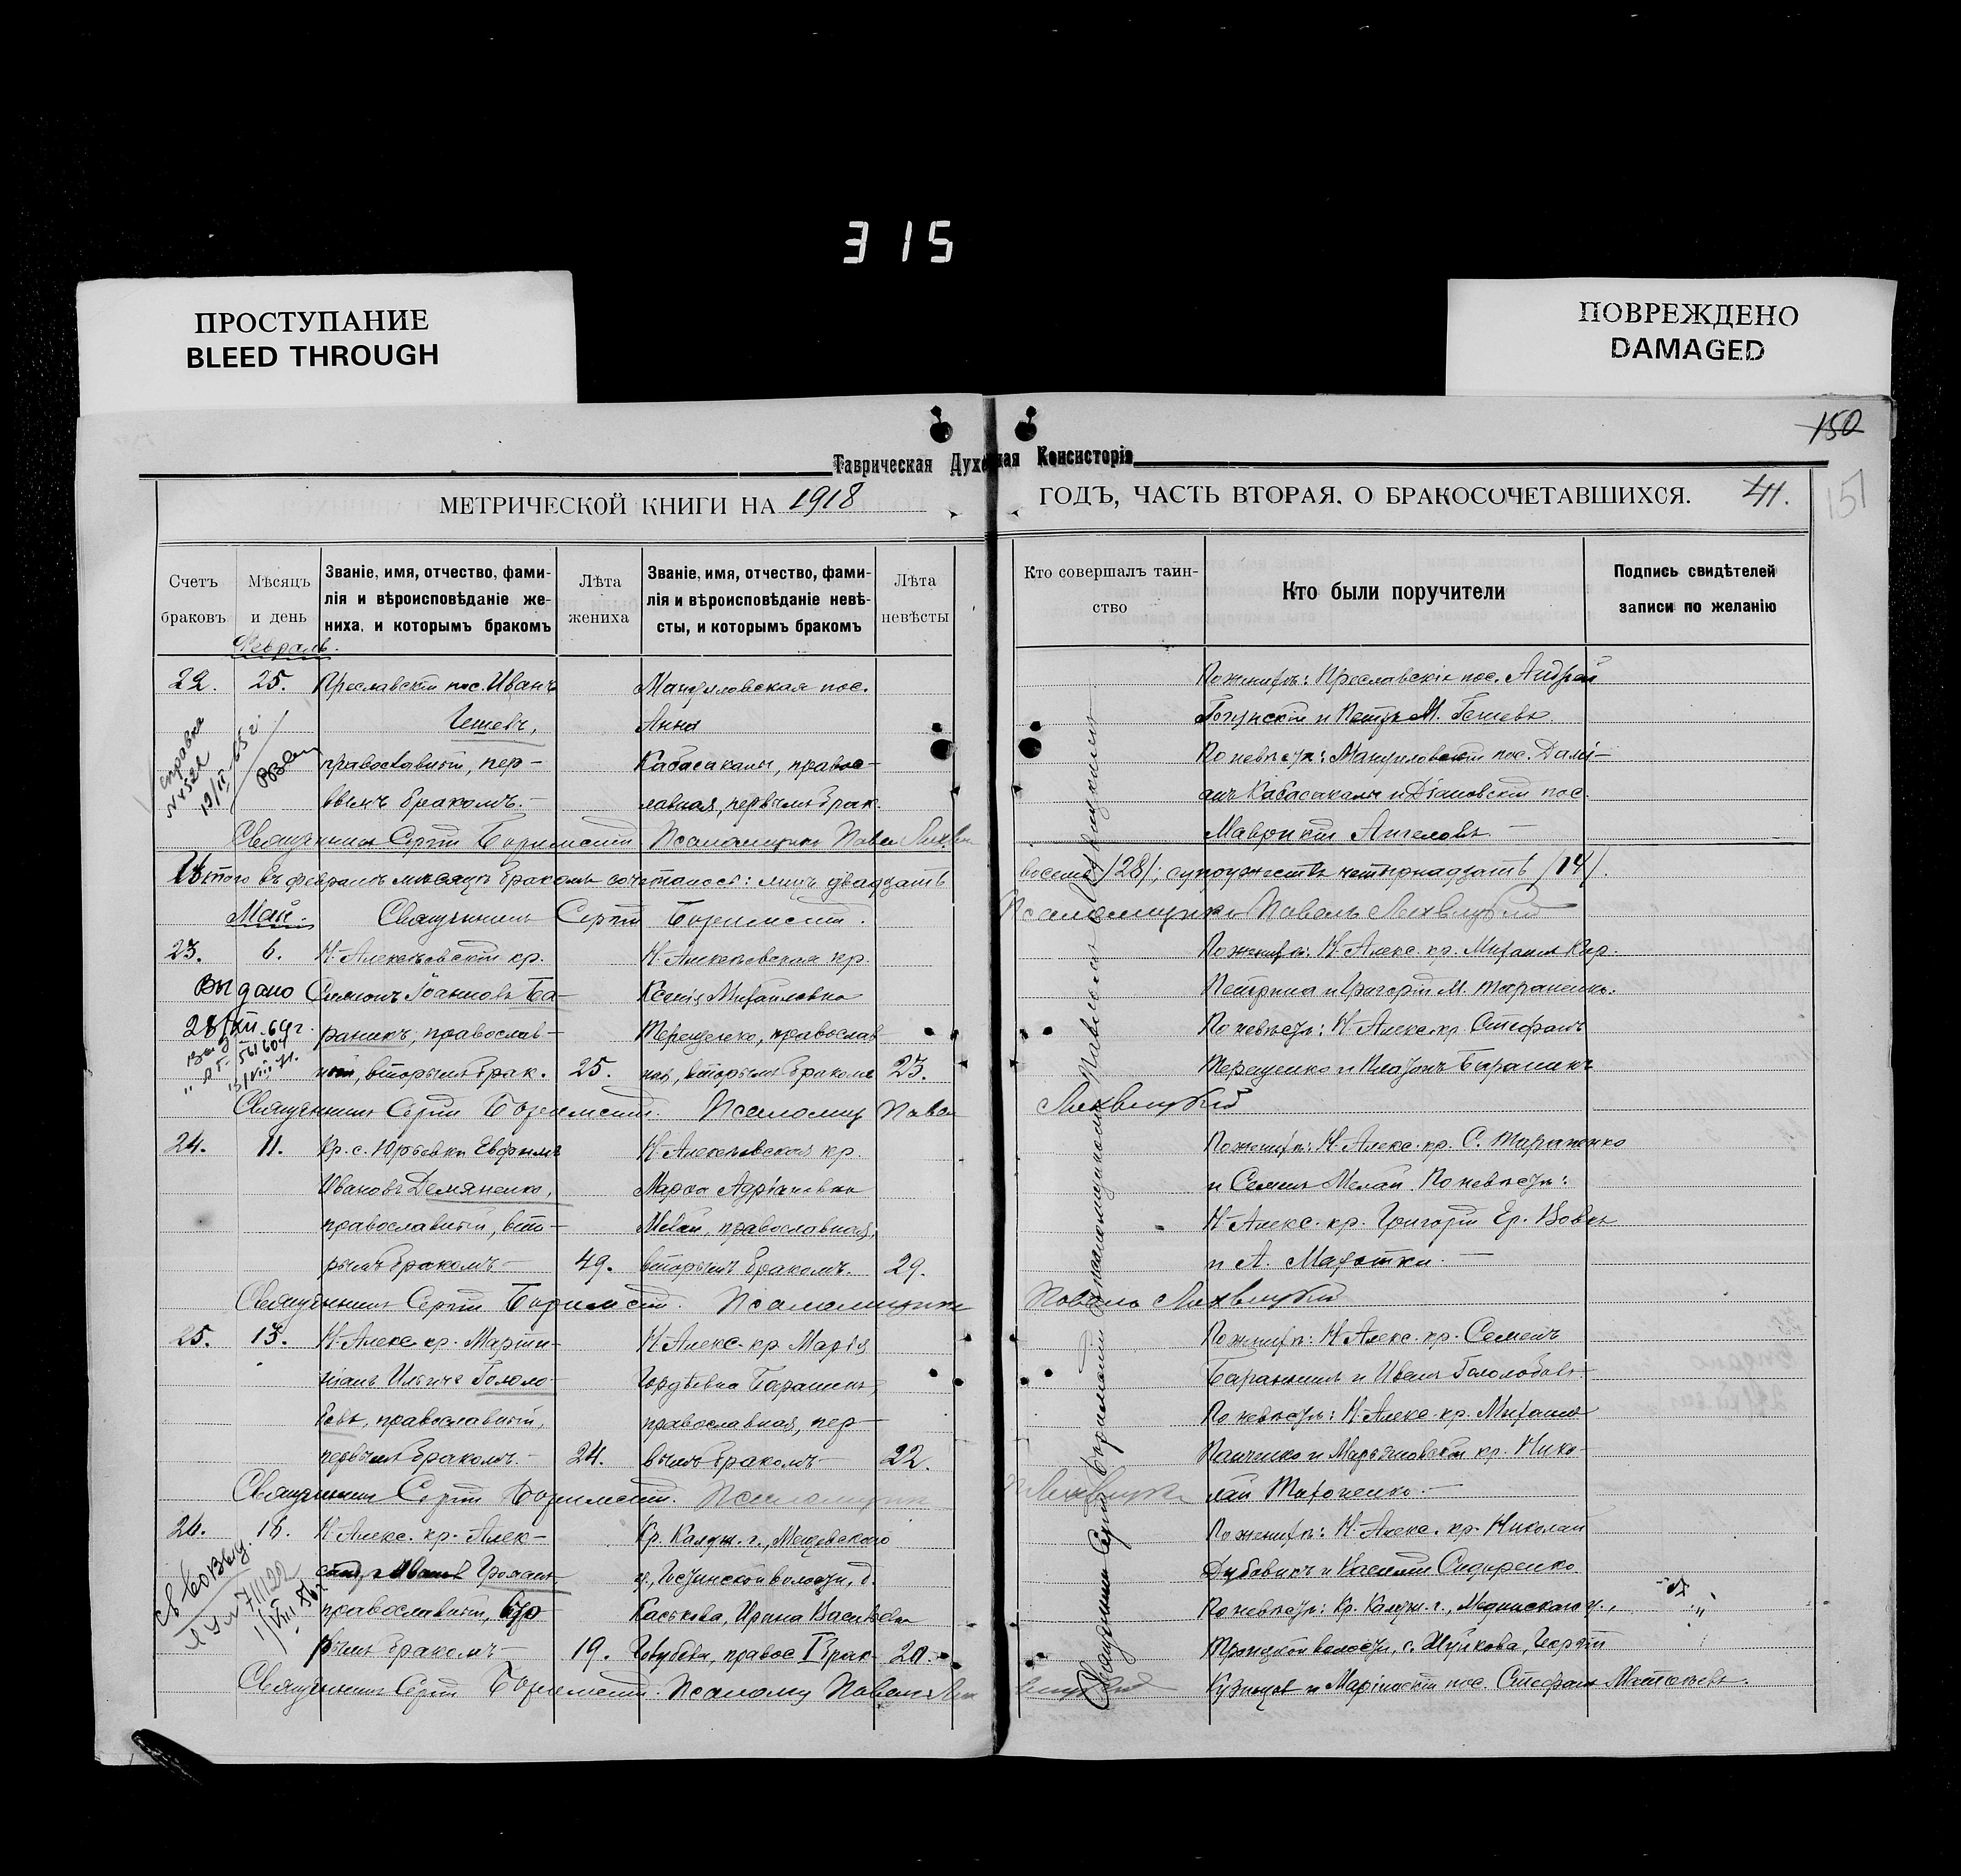 315
ПРОСТУПАНИЕ
BLEED THROUGH
ПОВРЕЖДЕНО
DAMAGED
150
151
Таврическая Духовная Консисторія
МЕТРИЧЕСКОЙ КНИГИ НА 1918 ГОДЪ, ЧАСТЬ ВТОРАЯ, О БРАКОСОЧЕТАВШИХСЯ.
Счетъ браковъ
Мѣсяцъ и день
Званіе, имя, отчество, фами-
лія и вѣроисповѣданіе же-
ниха, и которымъ бракомъ
Лѣта жениха
Званіе, имя, отчество, фами-
лія и вѣроисповѣданіе невѣ-
сты, и которымъ бракомъ
Лѣта невѣсты
Кто совершалъ таин-
ство
Кто были поручители
Подпись свидѣтелей
записи по желанію
Февраль.
22. 25. Преславскій пос. Иванъ
Гешевъ,
православный, пер-
вымъ бракомъ.-
справка
Мануиловская пос.
Анна
Кабасакалы, правос-
лавная, первымъ брак.
По женихѣ: Преславскіе пос. Андрей
и Петръ М. Гешевъ
По невѣстѣ: Мануиловскій пос. Дамі-
анъ Кабасакалы и Діановскій пос.
Маврикій Ангеловъ. -
Священникъ Сергій Псаломщикъ Павелъ
Итого въ февралѣ мѣсяцѣ бракомъ сочеталось: лицъ двадцать восемь /28/; супружествъ четырнадцать /14/.
Май. Священникъ Сергій Псаломщикъ Павелъ Лихвицкій
23. 6. Н-Алексѣевскій кр.
Симеонъ Іоанновъ Ба-
раникъ, православ-
ный, вторымъ брак. 25.
Выдано
28/XII.64г.
Н-Алексѣевская кр.
Ксенія Михайловна
Терещенко, православ
ная, вторымъ бракомъ 23.
По женихѣ: Н. Алекс. кр. Михаилъ Кир.
Петрина и Григорій М. Тараненко.
По невѣстѣ: Н-Алекс. кр. Стефанъ
Терещенко и Платонъ Бараникъ
Священникъ Сергій Псаломщ Павелъ Лихвицкій
24. 11. Кр. с. Юрьевки Евфимъ
Ивановъ Демяненко,
православный, вто-
рымъ бракомъ - 49.
Н-Алексѣевская кр.
Марѳа Адріановна
Мелай, православная,
вторымъ бракомъ. 29.
По женихѣ: Н. Алекс. кр. С. Тараненко
и Семенъ Мелай. По невѣстѣ:
Н-Алекс. кр. Григорій Ер. Вовкъ
и А. -
Священникъ Сергій Псаломщикъ Павелъ Лихвицкій
25. 13. Н-Алекс кр. Марти-
ніанъ Ильичъ Гололо-
бовъ, православный,
первымъ бракомъ. - 24.
Н-Алекс. кр. Марія
Гордѣевна Бараникъ,
православная, пер-
вымъ бракомъ - 22.
По женихѣ: Н-Алекс. кр. Семенъ
Бараникъ и Иванъ Гололобовъ
По невѣстѣ: Н-Алекс. кр. Михаилъ
Панченко и Марьяновскій кр. Нико-
лай -
Священникъ Сергій Псаломщикъ Лихвицкій
26. 18. Н-Алекс. кр. Алек-
православный,
рымъ бракомъ - 19.
Кр. Калуж. г., Мещовскаго
у., волости, д.
Каськова, Ирина Васильевна
правос I брак 20.
По женихѣ: Н-Алекс. кр. Николай
Дубовикъ и Василій Сидоренко
По невѣстѣ: Кр. Калуж. г., Медынскаго у.,
Троицкой волости, с.
Кузнецов и Маріинскій пос. Стефанъ
Священникъ Сергій Псаломщ Павелъ